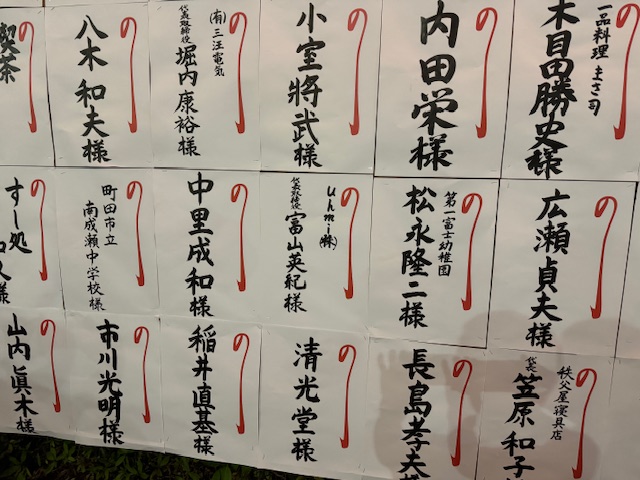 一品料理 まさ司
木昌勝史様
内田栄様
小室將武様
(有)三汪電気
代表取締役
堀内康裕様
八木和夫様
喫茶
広瀬貞夫様
第一富士幼稚園
松永隆二様
uhmi(株)
代表取締役
富山英紀様
中里成和様
町田市立
南成瀬中学校様
すし処
秩父屋寝具店
代表
笠原和子様
長島孝夫様
清光堂様
稲井直基様
市川光明様
山内眞木様